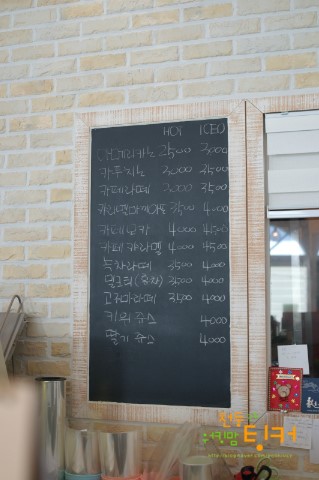 HOT ICED
아메리카노 2500 3000
카푸치노 3000 3500
카페라떼 3000 3500
카라멜마끼아또 3500 4000
카페모카 4000 4500
카페캬라멜 4000 4500
녹차라떼 3500 4000
밀크티(홍차) 3500 4000
고구마라떼 3500 4000
키위쥬스 4000
딸기쥬스 4000
워킹맘 팅커